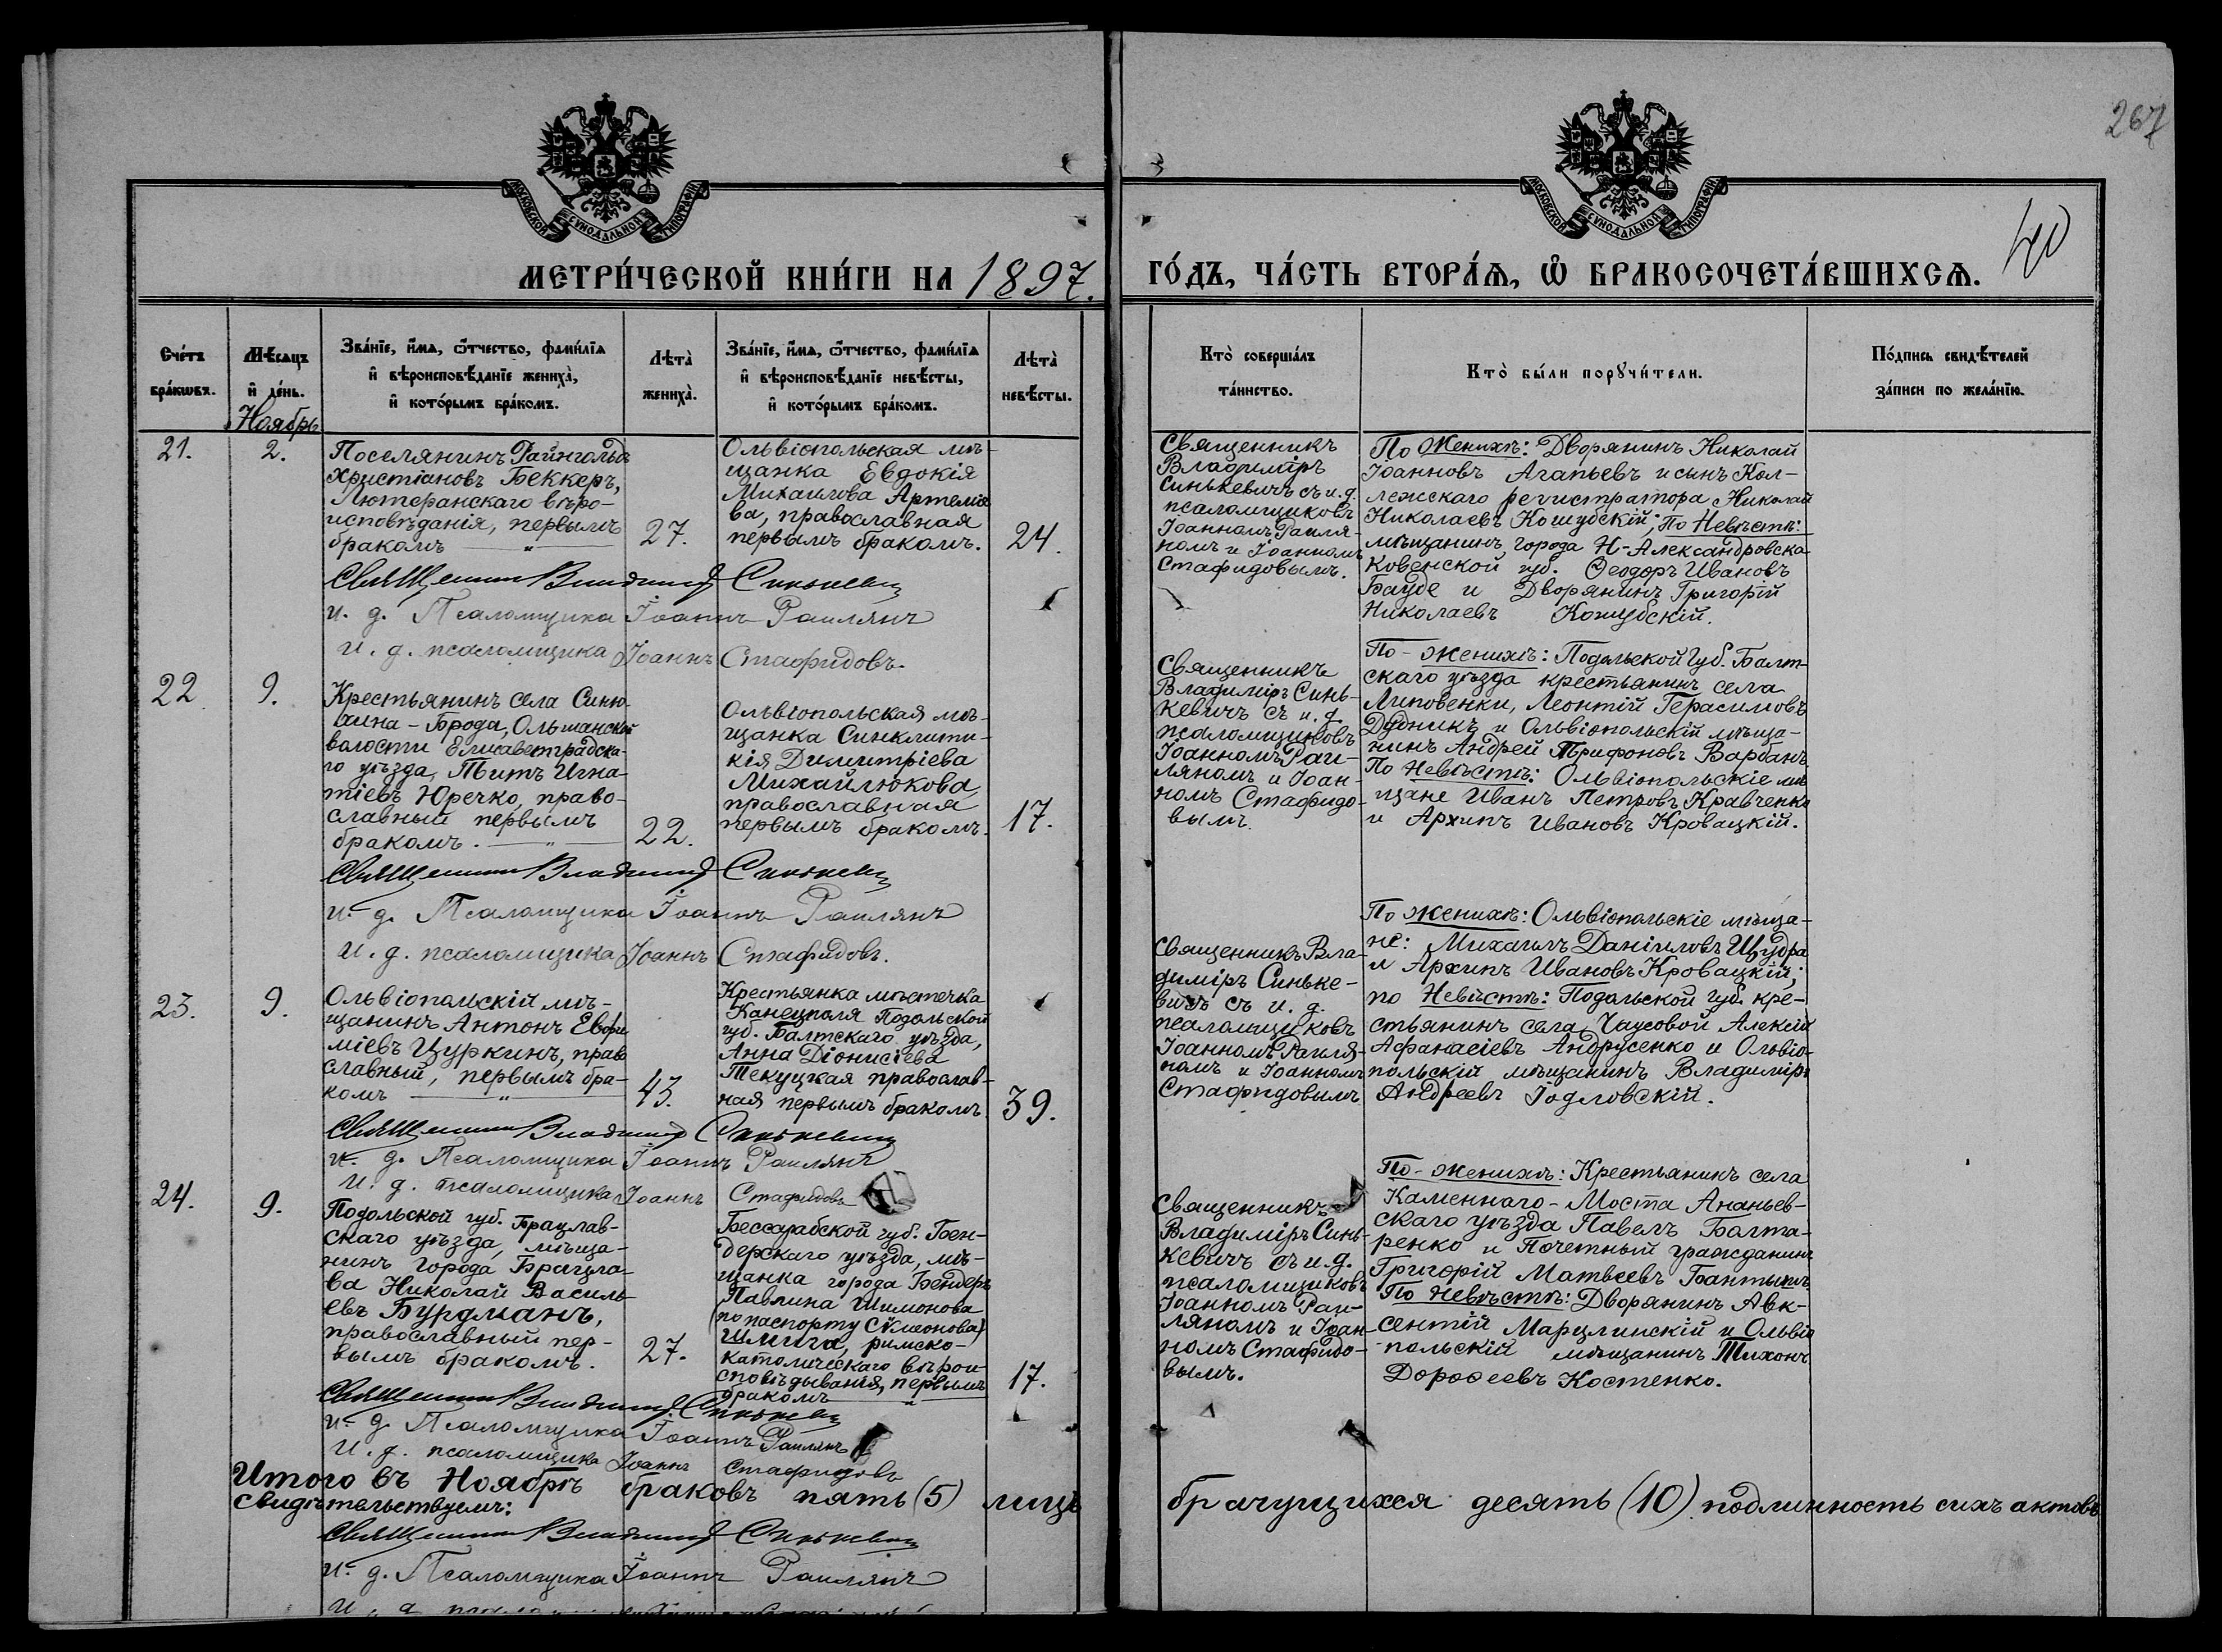 267
МОСКОВСКОЙ СѴНОДАЛЬНОЙ ТИПОГРАФІИ
МОСКОВСКОЙ СѴНОДАЛЬНОЙ ТИПОГРАФІИ
40
МЕТРИ́ЧЕСКОЙ КНИ́ГИ НА 1897.
ГО́ДЪ, ЧА́СТЬ ВТОРА́Ѧ, Ѽ БРАКОСОЧЕТА́ВШИХСѦ.
Сче́тъ
бра́кѡвъ.
Мѣ́сѧцъ
и҆ де́нь.
Зва́нїе, и҆́мѧ, ѻ҆́тчество, фами́лїѧ
и҆ вѣроисповѣ́данїе жениха̀,
и҆ кото́рымъ бра́комъ.
Лѣта̀
жениха̀.
Зва́нїе, и҆́мѧ, ѻ҆́тчество, фами́лїѧ
и҆ вѣроисповѣ́данїе невѣ́сты,
и҆ кото́рымъ бра́комъ.
Лѣта̀
невѣ́сты.
Кто̀ соверша́лъ
та́инство.
Кто̀ бы́ли порꙋчи́тели.
По́дпись свидѣ́телей
за́писи по жела́нїю.
Ноябрь
21.
2.
Поселянинъ Райнгольдъ
Христіановъ Беккеръ,
Лютеранскаго вѣро-
исповѣданія, первымъ
бракомъ — „ —
27.
Ольвіопольская мѣ-
щанка Евдокія
Михаилова Артеміе
ва, православная
первымъ бракомъ.
24.
Священникъ
Владиміръ
Синькевичъ съ и. д.
псаломщиковъ
Іоанномъ Раиля-
номъ и Іоанномъ
Стафидовымъ.
По Женихѣ: Дворянинъ Николай
Іоанновъ Агапьевъ и сынъ Кол-
лежскаго регистратора Николай
Николаевъ Кошубскій; По Невѣстѣ:
мѣщанинъ города Н-Александровска
Ковенской губ. Ѳеодоръ Ивановъ
Бауде и Дворянинъ Григорій
Николаевъ Кошубскій.
Священникъ Владиміръ Синькевичъ
и. д. Псаломщика Іоаннъ Раилянъ
И. д. псаломщика Іоаннъ Стафидовъ.
22
9.
Крестьянинъ села Синю-
хина-Брода, Ольшанской
волости Елисаветградска-
го уѣзда, Титъ Игна-
тіевъ Юречко, право-
славный первымъ
бракомъ. — „ —
22.
Ольвіопольская мѣ-
щанка Синклити-
кія Димитріева
Михайлюкова
православная
первымъ бракомъ.
17.
Священникъ
Владиміръ Синь-
кевичъ съ и. д.
псаломщиковъ
Іоанномъ Раи-
ляномъ и Іоан-
номъ Стафидо-
вымъ.
По-Женихѣ: Подольской Губ. Балт-
скаго уѣзда крестьянинъ села
Липовенки, Леонтій Герасимовъ
Дудникъ и Ольвіопольскій мѣща-
нинъ Андрей Трифоновъ Варбанъ
По Невѣстѣ: Ольвіопольскіе мѣ
щане Иванъ Петровъ Кравченко
и Архипъ Ивановъ Кровацкій.
Священникъ Владиміръ Синькевичъ
и. д. Псаломщика Іоаннъ Раилянъ
И. д. псаломщика Іоаннъ Стафидовъ.
23.
9.
Ольвіопольскій мѣ-
щанинъ Антонъ Евфи
міевъ Цуркинъ, право
славный, первымъ бра-
комъ — „ —
43.
Крестьянка мѣстечка
Канецполя Подольской
губ. Балтскаго уѣзда,
Анна Діонисіева
Текуцкая православ-
ная первымъ бракомъ.
39.
Священникъ Вла-
диміръ Синьке-
вичъ съ и. д.
псаломщиковъ
Іоанномъ Раиля-
номъ и Іоанномъ
Стафидовымъ
По женихѣ: Ольвіопольскіе мѣща-
не: Михаилъ Даніиловъ Щудра
и Архипъ Ивановъ Кровацкій;
по Невѣстѣ: Подольской губ. кре-
стьянинъ села Чаусовой Алексій
Аѳанасіевъ Андрусенко и Ольвіо-
польскій мѣщанинъ Владиміръ
Андреевъ Годловскій.
Священникъ Владиміръ Синькевичъ
и. д. Псаломщика Іоаннъ Раилянъ
И. д. псаломщика Іоаннъ Стафидовъ
24.
9.
Подольской губ. Брацлав-
скаго уѣзда, мѣща-
нинъ города Брацла-
ва Николай Василь-
евъ Бурдманъ,
православный пер-
вымъ бракомъ.
27.
Бессарабской губ. Бен-
дерскаго уѣзда, мѣ-
щанка города Бендеръ
Павлина Шимонова
(по паспорту Сѵмеонова)
Шмига, римско-
католическаго вѣрои-
сповѣдыванія, первымъ
бракомъ — „ —
17.
Священникъ
Владиміръ Синь-
кевичъ съ и. д.
псаломщиковъ
Іоанномъ Раи-
ляномъ и Іоан-
номъ Стафидо-
вымъ.
По-женихѣ: Крестьянинъ села
Каменнаго-Моста Ананьев-
скаго уѣзда Павелъ Болта-
ренко и Почетный гражданинъ
Григорій Матвеевъ Бантышъ.
По невѣстѣ: Дворянинъ Авк-
сентій Марцлинскій и Ольвіо
польскій мѣщанинъ Тихонъ
Дороѳеевъ Костенко.
Священникъ Владиміръ Синькевичъ
и. д. Псаломщика Іоаннъ Раилянъ
И. д. псаломщика Іоаннъ Стафидовъ
Итого въ Ноябрѣ браковъ пять (5) лицъ брачущихся десять (10) подлинность сихъ актовъ
свидѣтельствуемъ:
Священникъ Владиміръ Синькевичъ
и. д. Псаломщика Іоаннъ Раилянъ